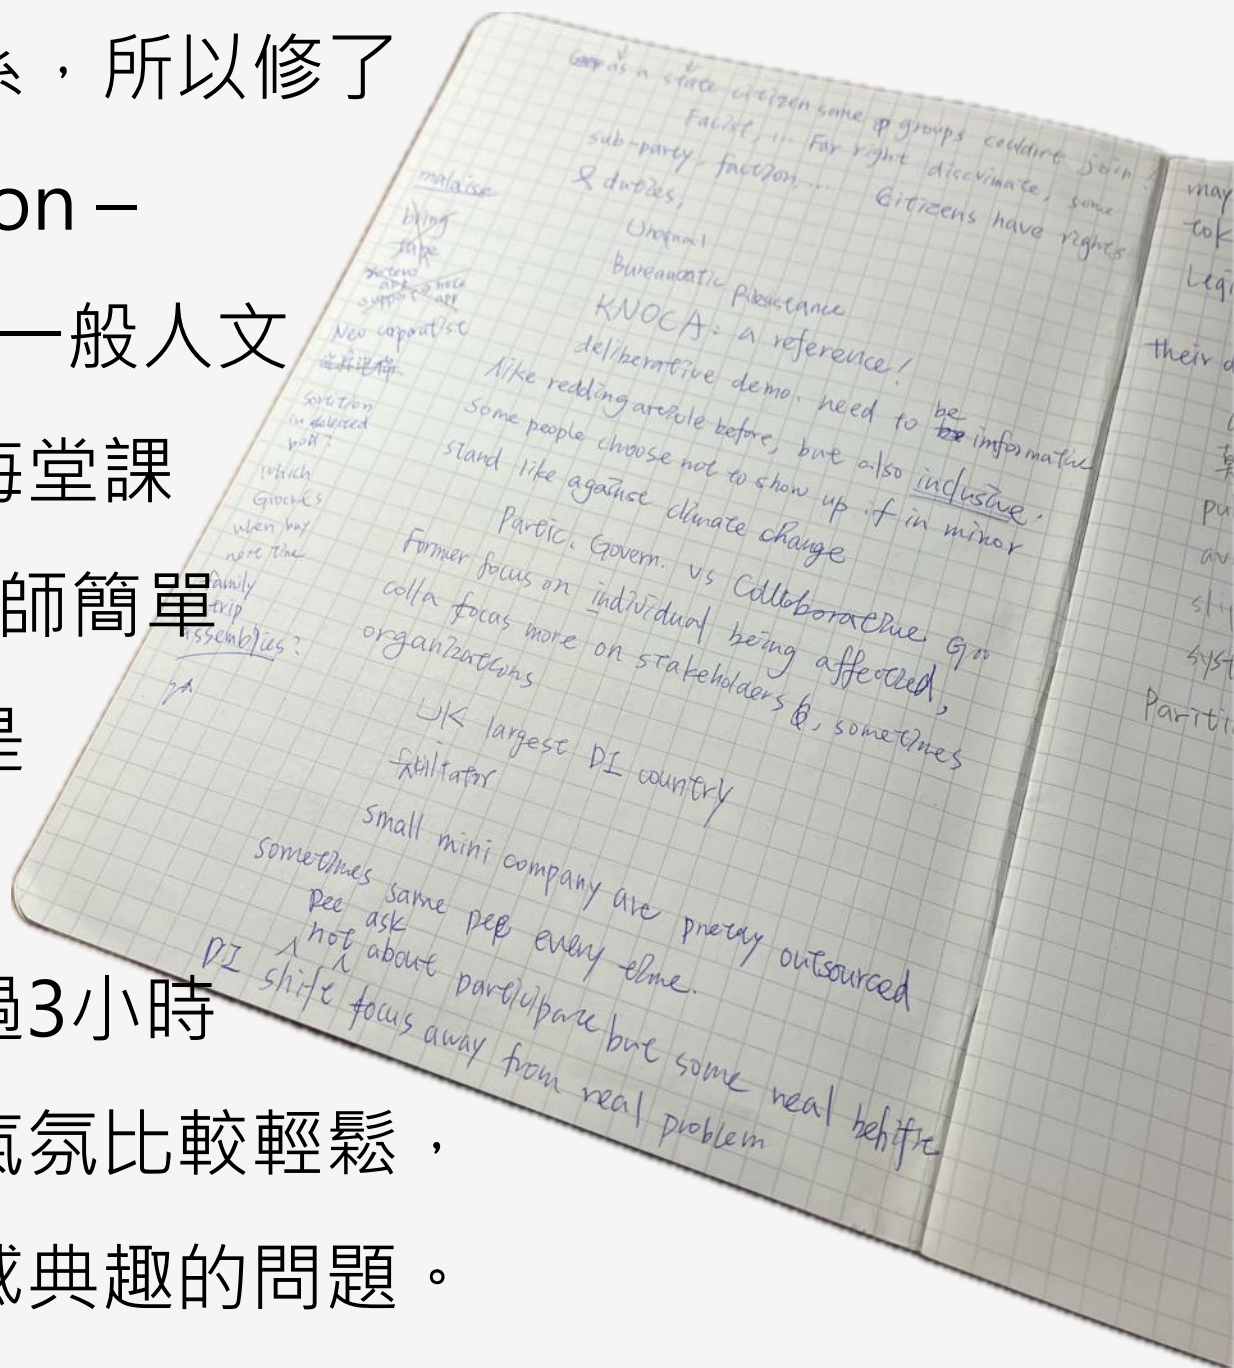 ，所以修了
on –
一般人文
堂課
師簡單
是
過3小時
氛比較輕鬆，
感典趣的問題。
as a state citizen some groups couldn't join!
Facist, ... Far right discrimate, some
sub-party, faction, ... Citizens have rights
& duties,
Unequal
Bureaucratic Resistance
KNOCA: a reference!
deliberative demo. need to be be imformative
like redding areticle before, but also inclustive.
some people choose not to show up if in minor
stand like against climate change
Partic. Govern. vs Collaborative Go..
Former focus on individual being affected,
colla focus more on stakeholders &, sometimes
organizations
UK largest DI country
small mini company are outsourced
sometimes same every time.
ask
not about participate but some real
DI shift focus away from real problem
malaise
bring
tape
Neo corporatist
sortition
in
which
when
more time
family
trip
assemblies?
may
tok
Legi
their
pu
av
syst
Partici